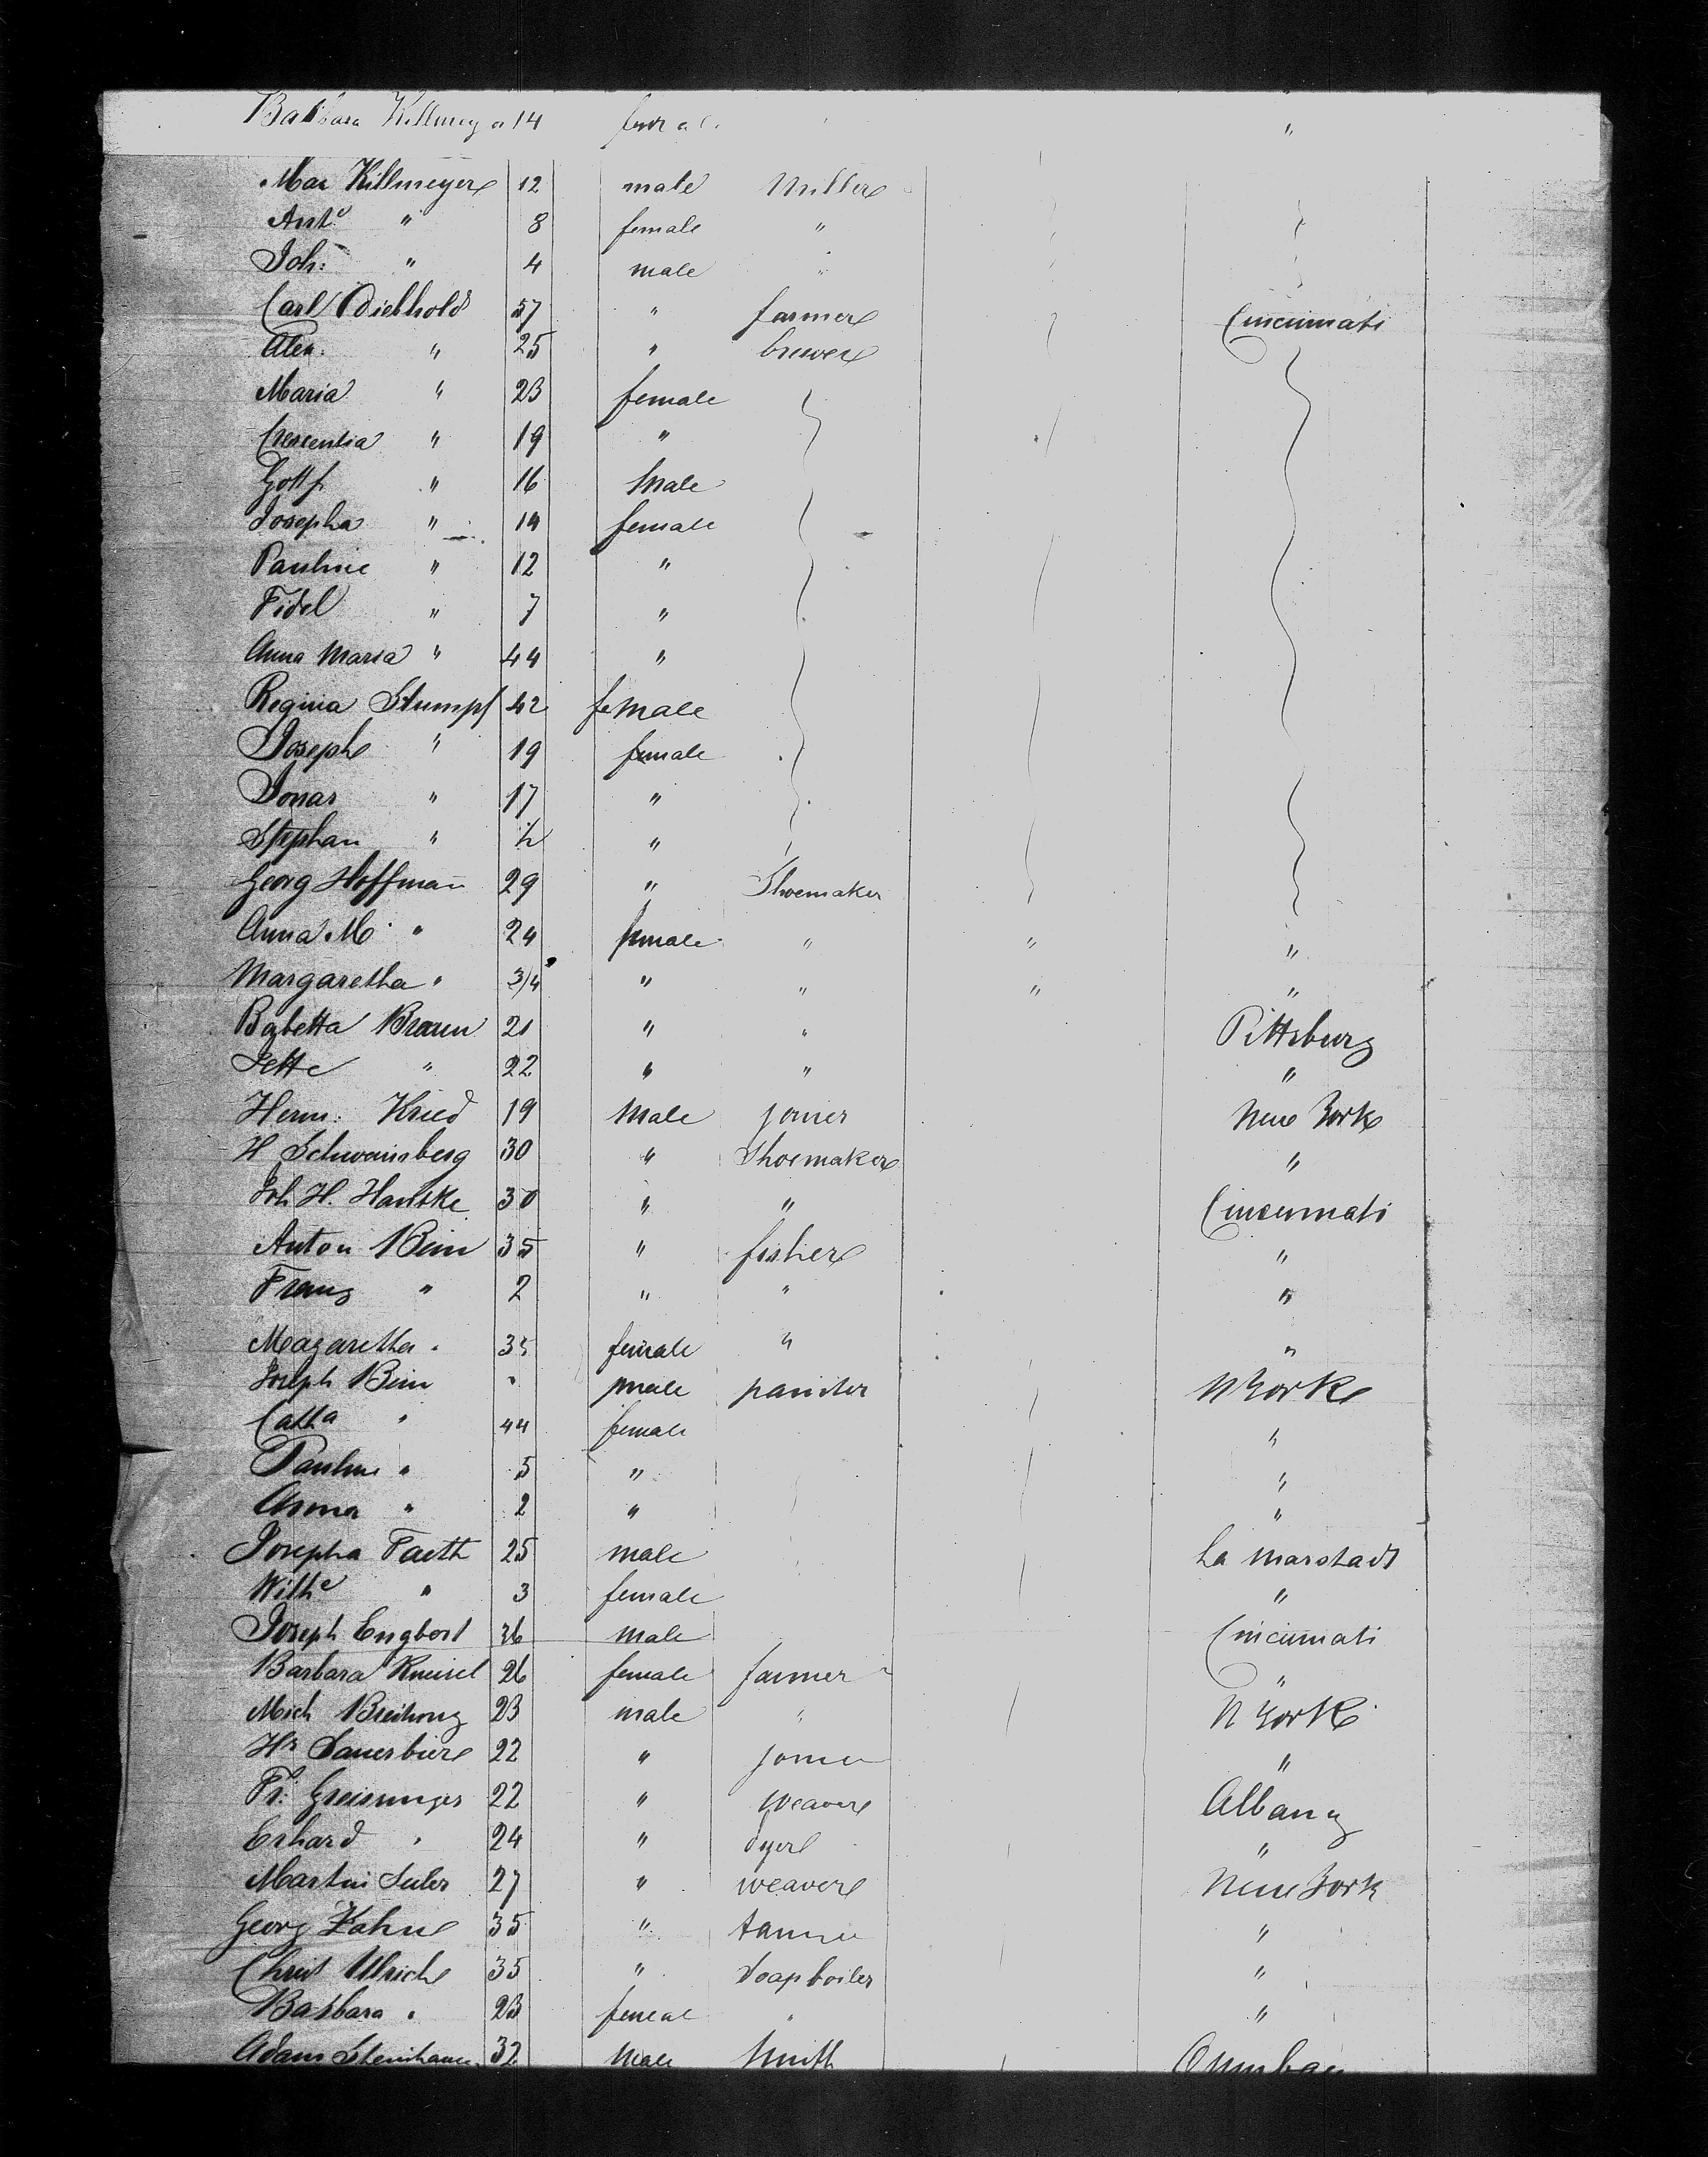 Barbara Killmeyer 14 female "
Max Killmeyer 12 male Miller
Ant: " 8 female "
Joh: " 4 male "
Carl Diebhold 57 " farmer Cincinnati
Alex. " 25 " brewer
Maria " 23 female
Crescentia " 19 "
Gottf " 16 Male
Josepha " 14 female
Pauline " 12 "
Fidel " 7 "
Anna Maria " 44 "
Regina Stumpf 42 female
Joseph " 19 female
Jonas " 17 "
Stephan " ½ "
Georg Hoffman 29 " Shoemaker
Anna M. " 24 female " " "
Margaretha " 3/4 " " " "
Babetta Braun 21 " " Pittsburg
Jette " 22 " " "
Herm: Kried 19 Male joiner New York
H Schwainsberg 30 " Shoemaker "
Joh H. Hantke 30 " " Cincinnati
Anton Bein 35 " fisher "
Franz " 2 " " "
Magaretha " 35 female " "
Joseph Bein " male painter N York
Catha " 44 female "
Pauline " 5 " "
Anna " 2 " "
Josepha Faeth 25 male La Marstadt
Wilhe " 3 female "
Joseph Engbert 36 male Cincinnati
Barbara Kneisel 26 female farmer "
Mich Breihung 23 male " N York
Hr Sauerbier 22 " joiner "
Fr: Greisinger 22 " weaver Albany
Erhard " 24 " dyer "
Martin Seiler 27 " weaver New York
Georg Hahn 35 " tanner "
Christ Ulrich 35 " Soapboiler "
Barbara " 23 female " "
Adam Steinhauer 32 Male Smith